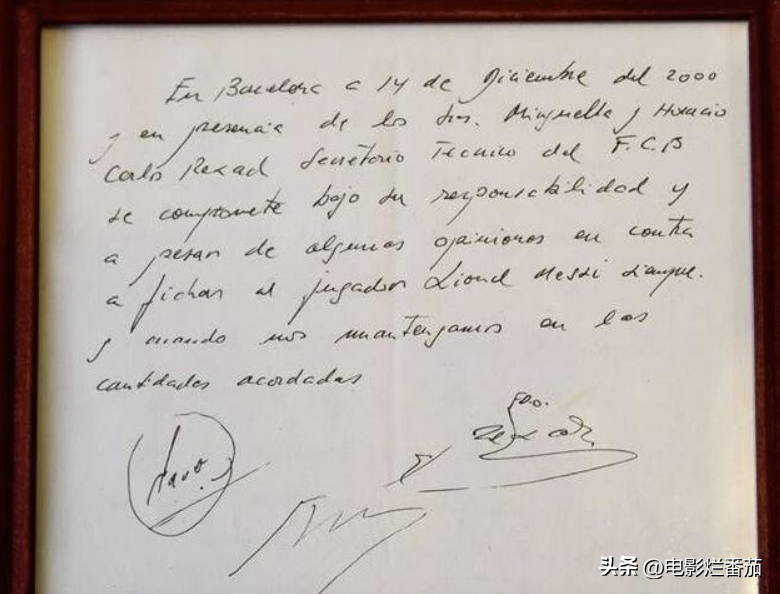 En Barcelona a 14 de Diciembre del 2000
y en presencia de los Srs. Minguella y Horacio
Carles Rexach Secretario Técnico del F.C.B
se compromete bajo su responsabilidad y
a pesar de algunas opiniones en contra
a fichar al jugador Lionel Messi siempre
y cuando nos mantengamos en las
cantidades acordadas
Fdo.
头条 @电影烂番茄